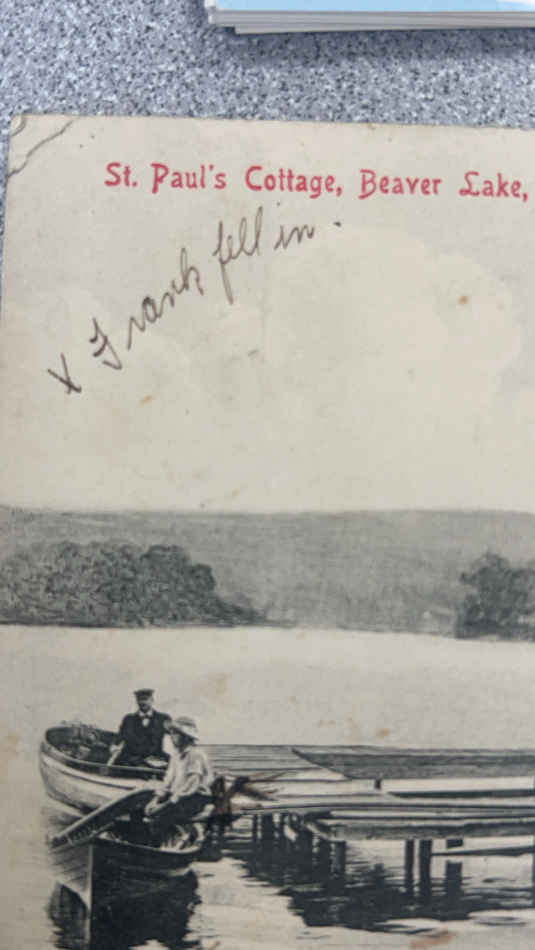 St. Paul's Cottage, Beaver Lake,
x Frank fell in.